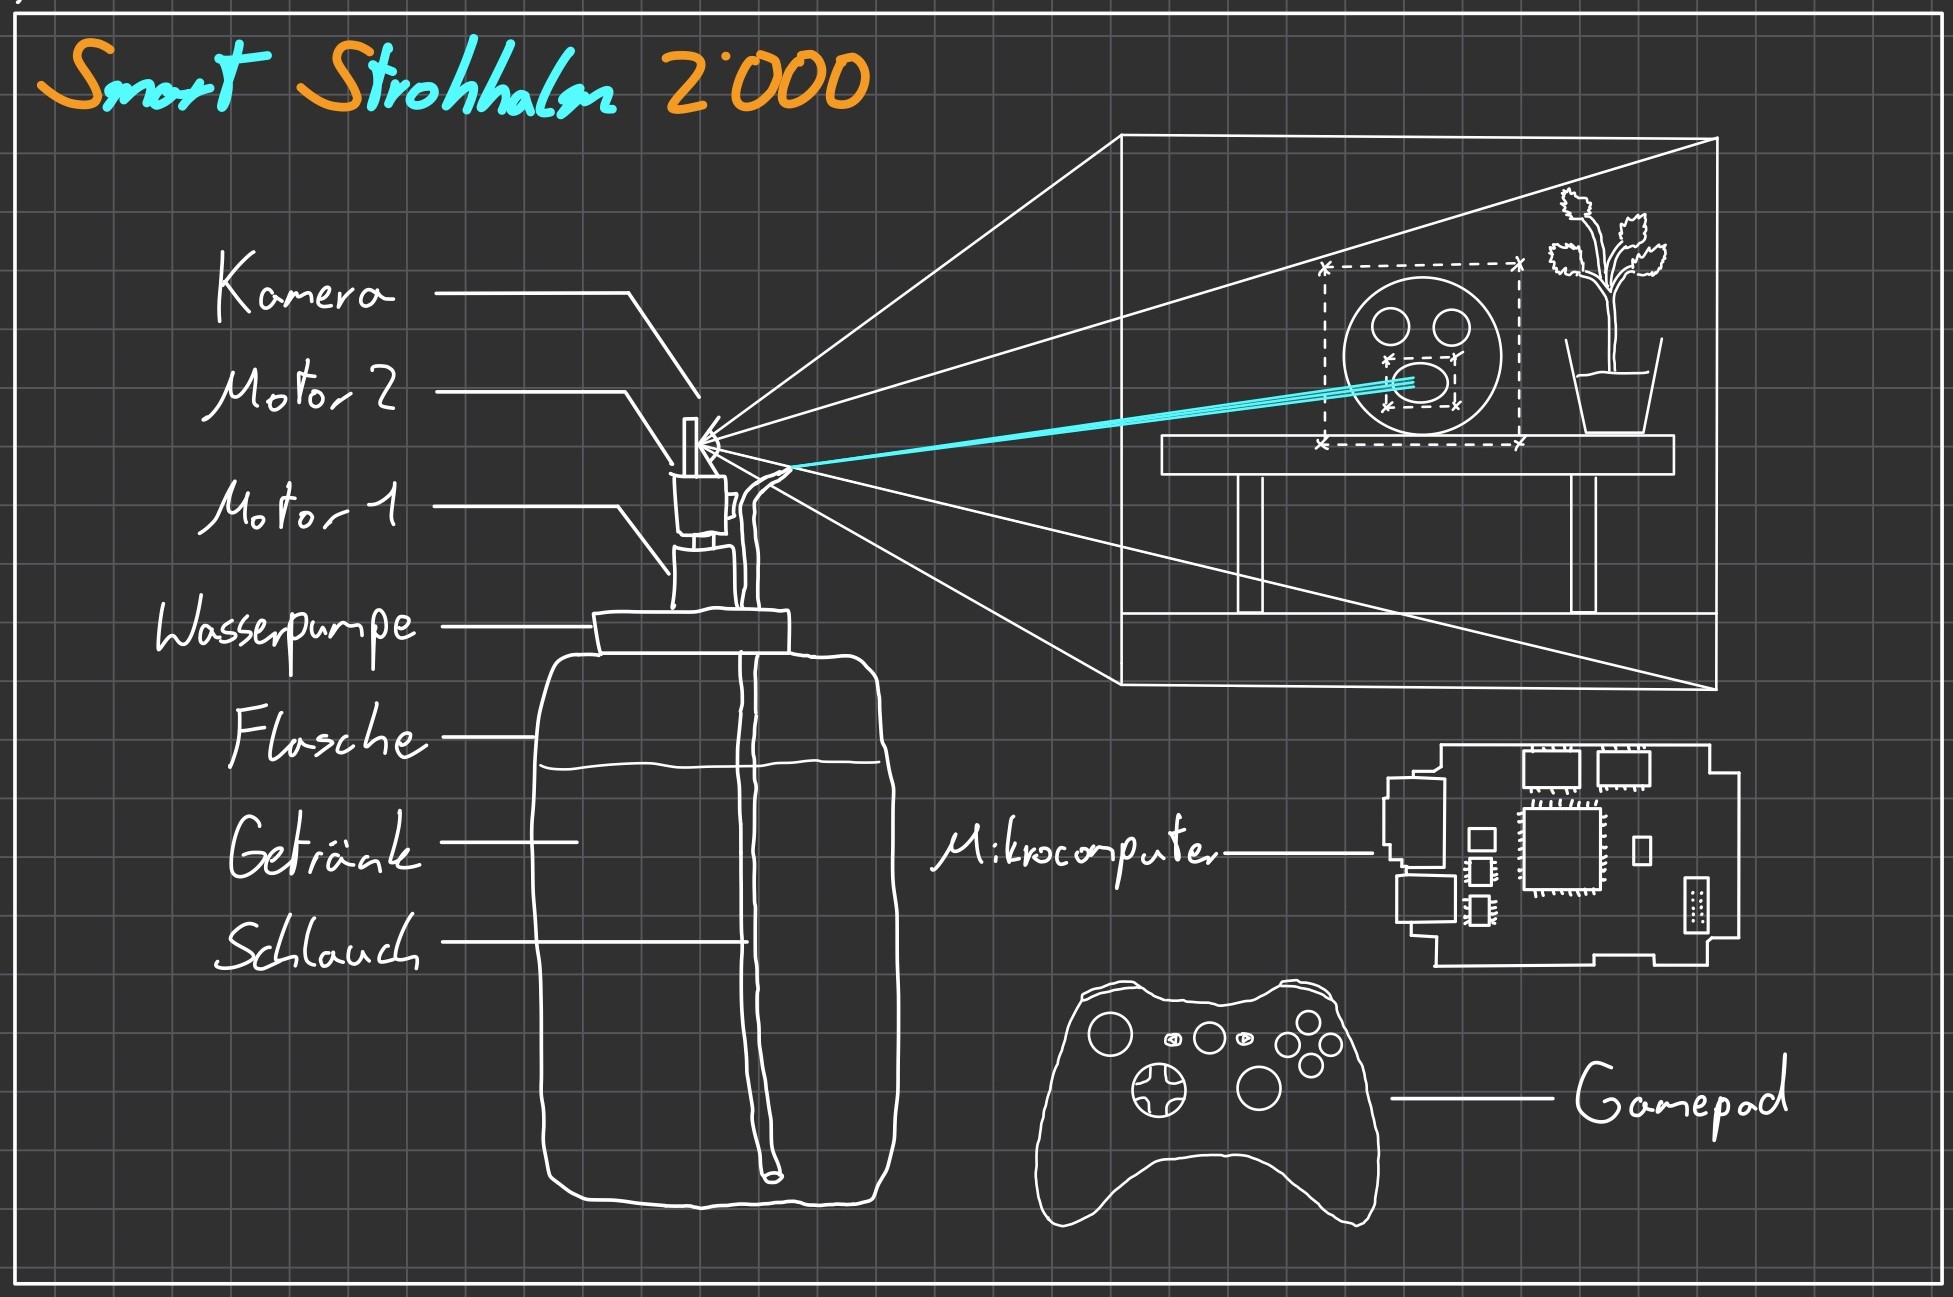 Smart Strohhalm 2'000
Kamera
Motor 2
Motor 1
Wasserpumpe
Flasche
Getränk
Schlauch
Mikrocomputer
Gamepad